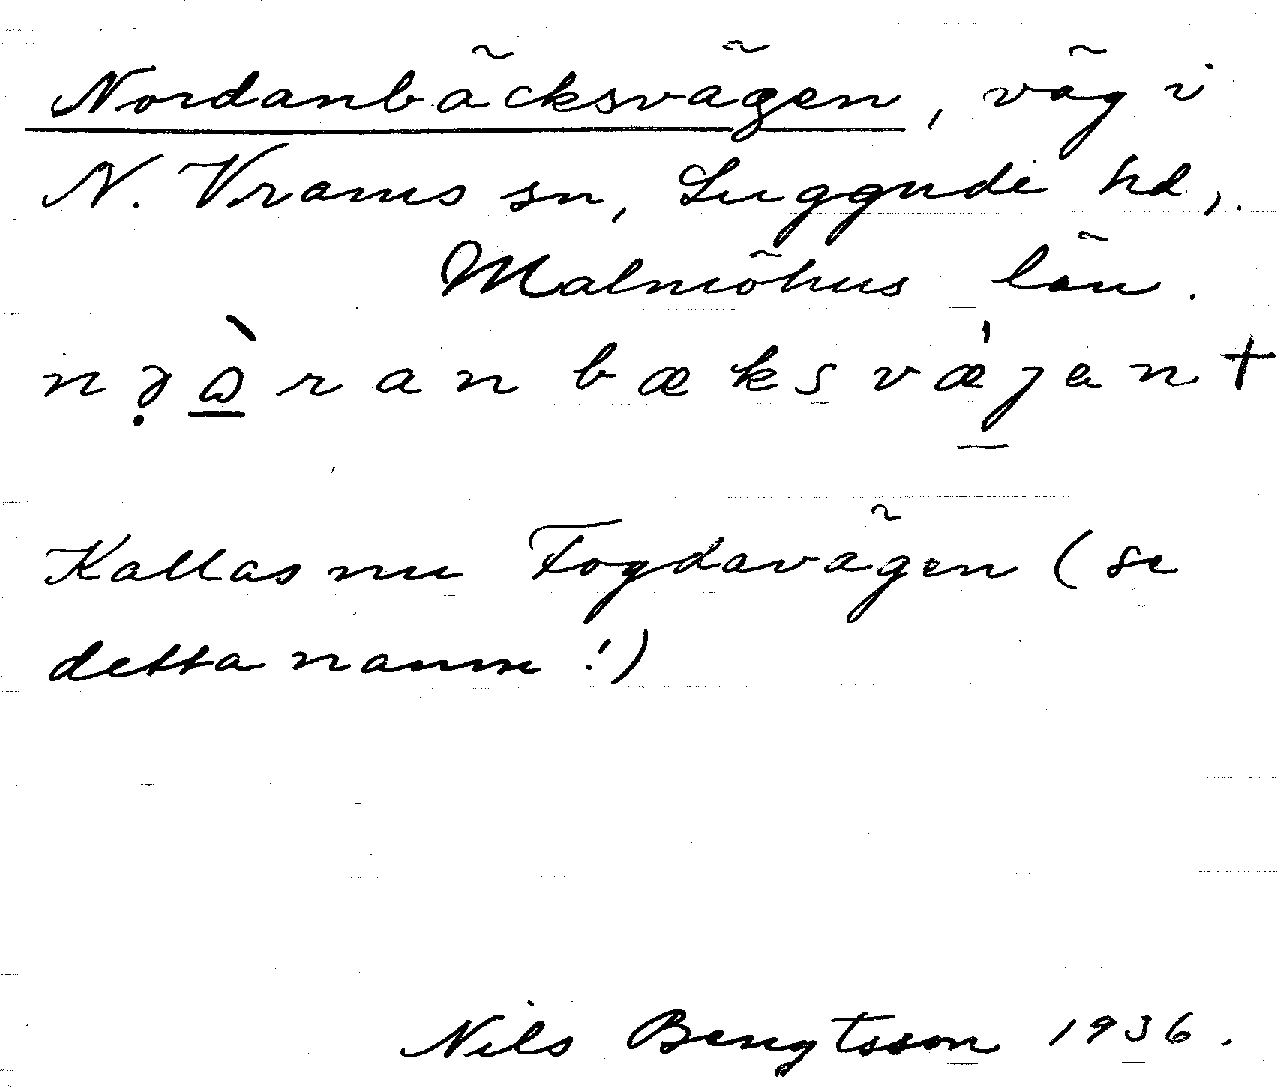 Nordanbäcksvägen, väg i
N. Vrams sn, Luggude hd,
Malmöhus län.
nə̣ὰran bæksvǽjen†
Kallas nu Fogdavägen (se
detta namn!)
Nils Bengtsson 1936.